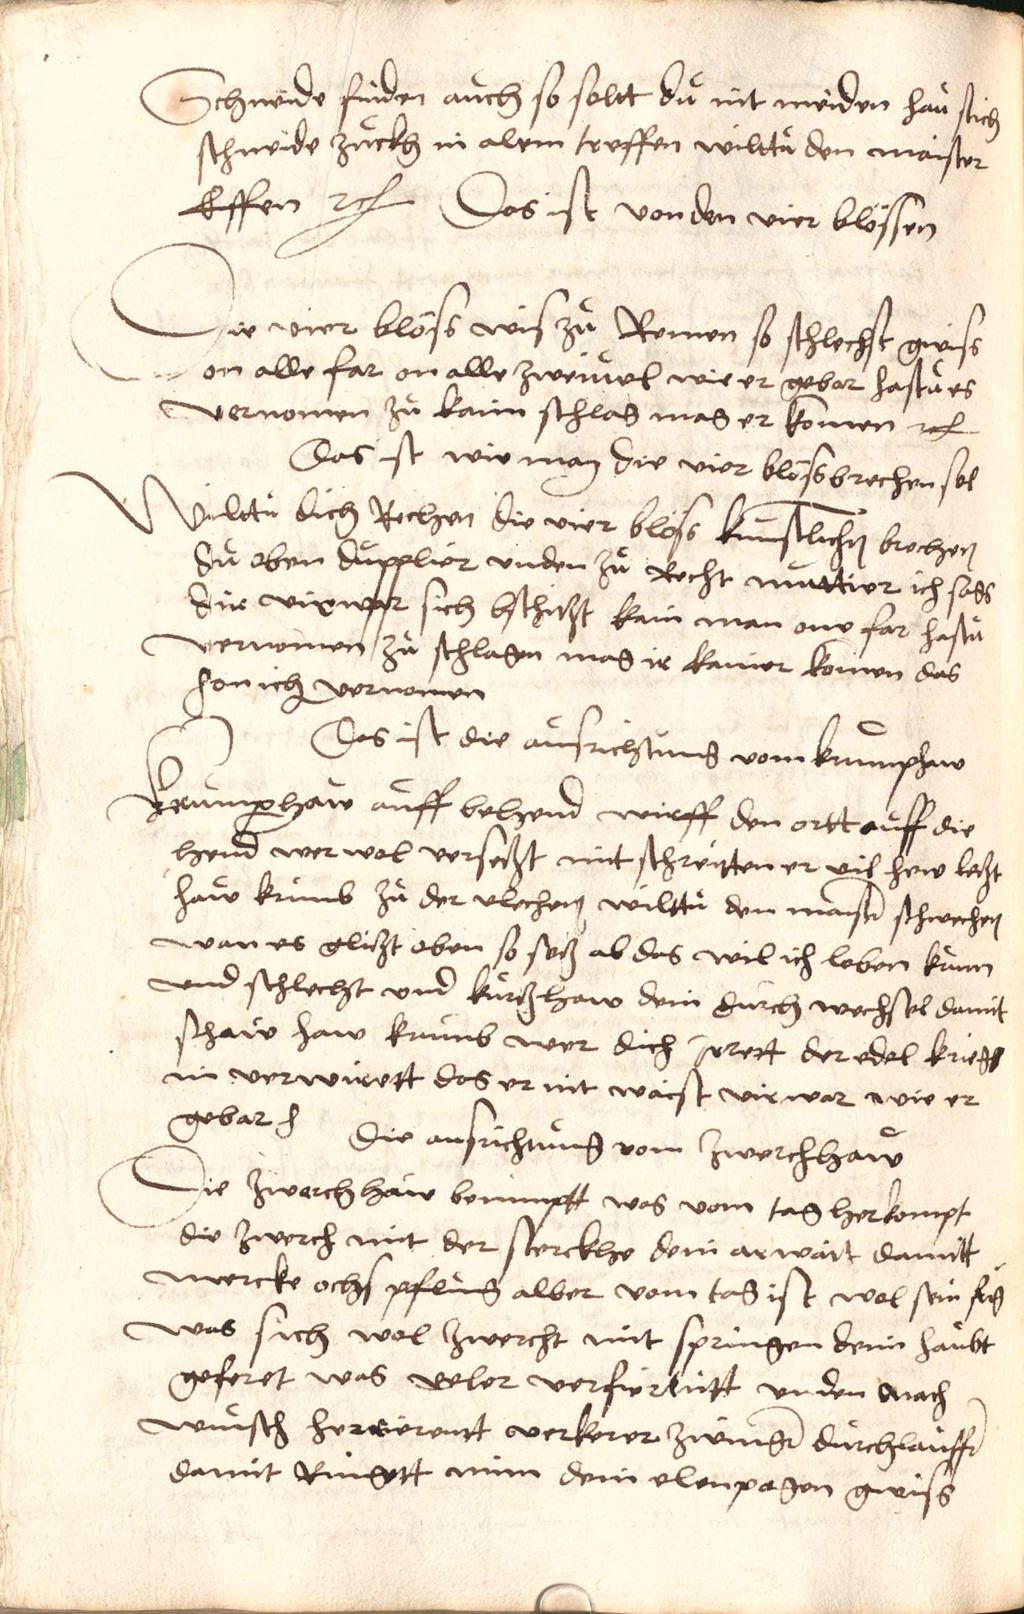 Schneide finden auch so soltt du nit meiden hau stich
schneide zuckh in alem treffen wilttu den maister
Effen rcħ Das ist von den vier blössen
Die vier blöss wis zu Remen so schlechst gwiss
on alle far on alle zweiuel wie er gebar hastu es
vernomen zu kaim schlag mag er komen rcħ
Das ist wie man die vier blöss brechen sol
Wilttu dich Rechen die vier blöss kunstlichen brechen
du oben dupplier unden zu Recht muttier ich sags
dir virwar sich bschitzt kain man one far hastu
vernomen zu schlagen mag ir kainer komen das
hon ich vernomen
Das ist die ausrichtung vom krumphaw
Krumphaw auff behend wirff den ortt auff die
hend wer wol versetzt mit schreitten er vil hew letzt
haw krumb zu der vlechen wilttu den maister schwechen
wan es glitzt oben so setz ab das wil ich loben krum
und schlecht und kurtzhaw dem durch wechsel damit
schaw haw krumb wer dich irrett der edel krieg
in verwirett das er nit waist virwar wie er
gebar
Die ausrichtung vom zwerchhaw
Die zwerchhaw benimptt was vom tag herkompt
die zwerch mit der sterckhe dem arwait damitt
mercke ochs pflug alber vom tag ist wol sein fug
was sich wol zwercht mit springen dem haubt
geferet was veler verfierlich unden nach
wunsch her rierentt verkerer zwinget durchlauffer
damit Ringett nim dem elenpogen gwiss